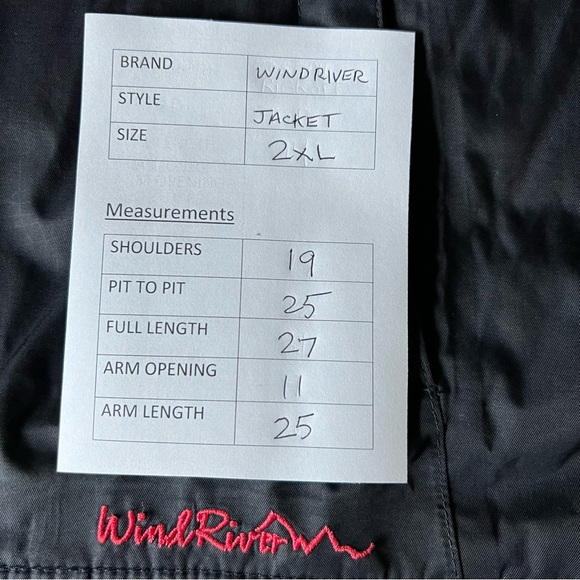 BRAND WINDRIVER
STYLE JACKET
SIZE 2XL
Measurements
SHOULDERS 19
PIT TO PIT 25
FULL LENGTH 27
ARM OPENING 11
ARM LENGTH 25
WindRiver